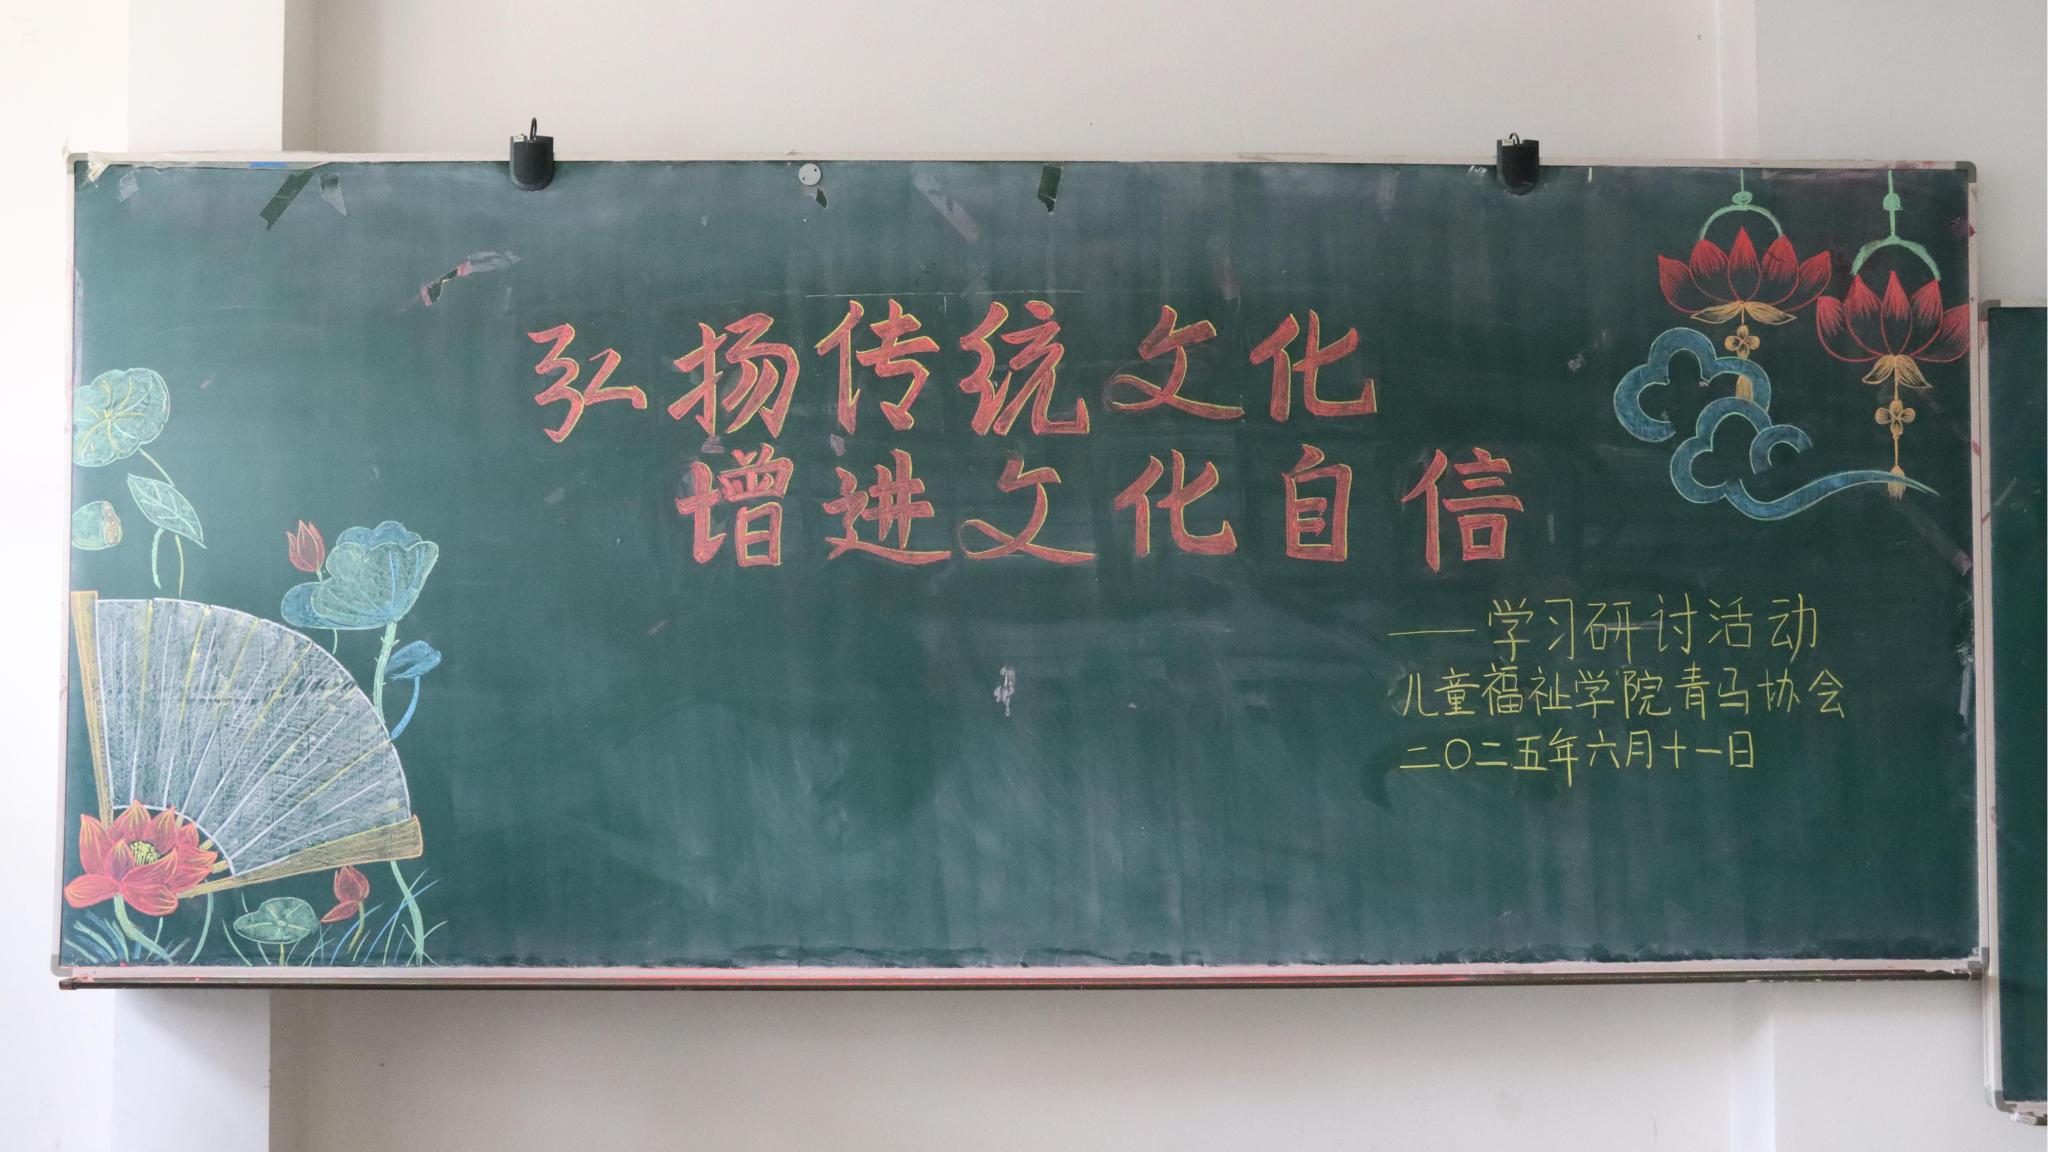 弘扬传统文化
增进文化自信
——学习研讨活动
儿童福祉学院青马协会
二〇二五年六月十一日